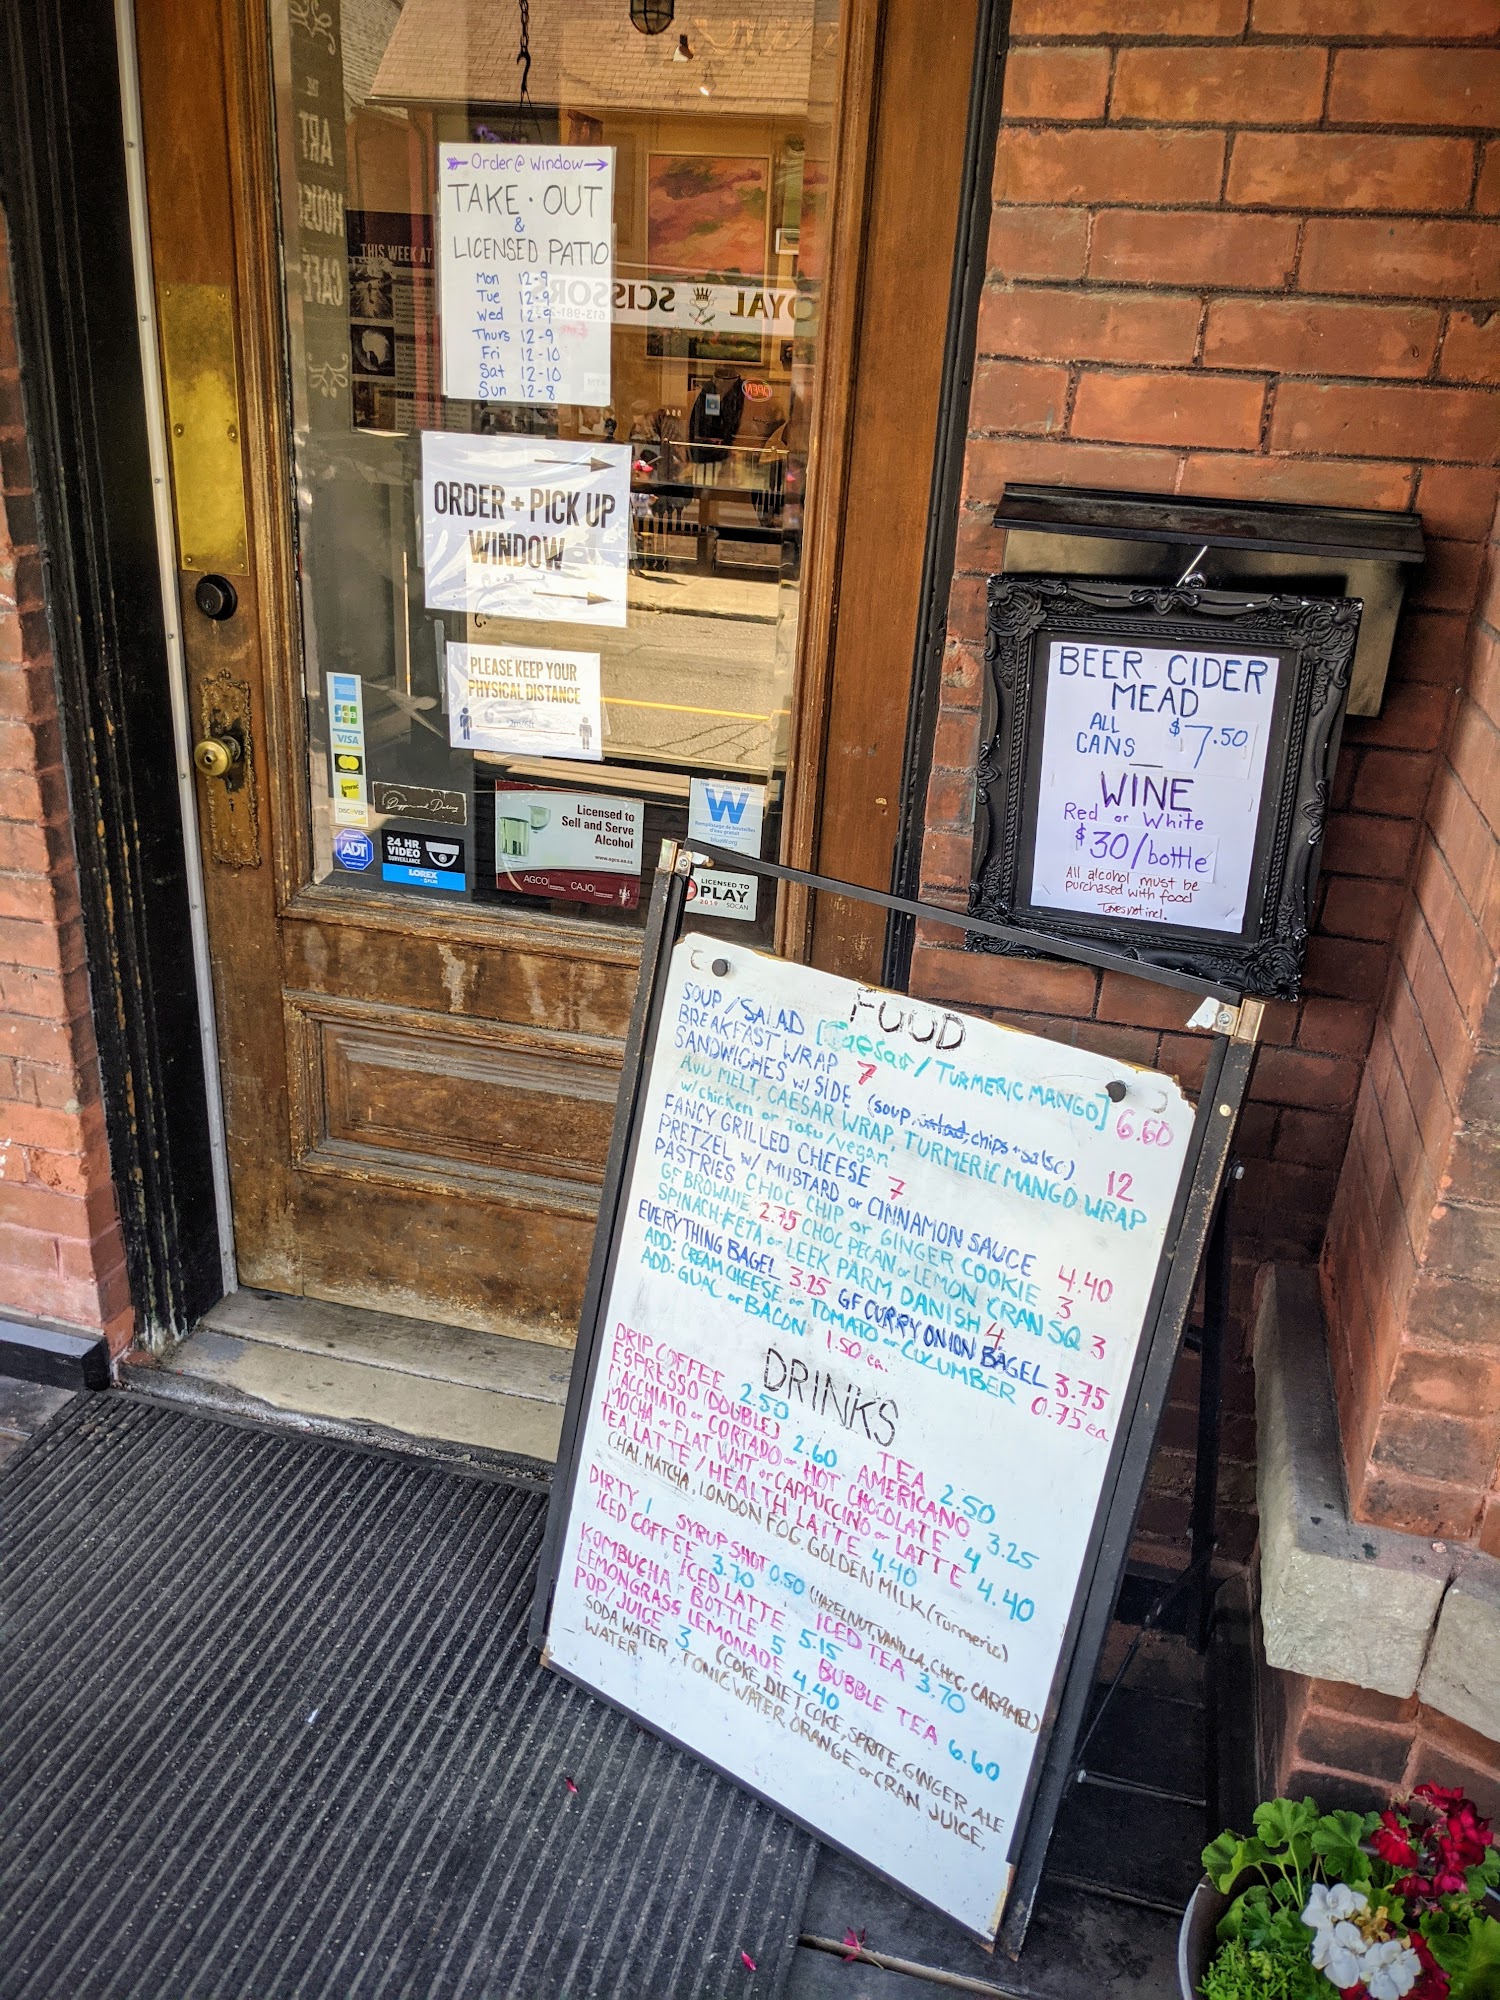 Order @ Window
TAKE·OUT
&
LICENSED PATIO
Mon 12-9
Tue 12-9
Wed 12-9
Thurs 12-9
Fri 12-10
Sat 12-10
Sun 12-8
THE
ART
HOUSE
CAFÉ
THIS WEEK AT
OYAL SCISSORS
OPEN
ORDER + PICK UP
WINDOW
PLEASE KEEP YOUR
PHYSICAL DISTANCE
JCB
VISA
Interac
DISCOVER
ADT
24 HR.
VIDEO
SURVEILLANCE
LOREX
Licensed to
Sell and Serve
Alcohol
www.agco.on.ca
AGCO CAJO
W
Remplissage de bouteilles
LICENSED TO
PLAY
2019 SOCAN
BEER CIDER
MEAD
ALL
CANS $7.50
WINE
Red or White
$30/bottle
All alcohol must be
purchased with food
Taxes not incl.
FOOD
SOUP/SALAD [Caesar/TURMERIC MANGO] 6.60
BREAKFAST WRAP 7
SANDWICHES w/ SIDE (soup, salad, chips+salsa) 12
AVO MELT, CAESAR WRAP TURMERIC MANGO WRAP
w/chicken or Tofu/vegan
FANCY GRILLED CHEESE 7
PRETZEL w/ MUSTARD or CINNAMON SAUCE 4.40
PASTRIES CHOC CHIP or GINGER COOKIE 3
GF BROWNIE 2.75 CHOC PECAN or LEMON CRAN SQ 3
SPINACH·FETA or LEEK PARM DANISH 4
EVERYTHING BAGEL 3.25 GF CURRY ONION BAGEL 3.75
ADD: CREAM CHEESE or TOMATO or CUCUMBER 0.75 ea
ADD: GUAC or BACON 1.50 ea.
DRINKS
DRIP COFFEE 2.50 TEA 2.50
ESPRESSO (DOUBLE) 2.60 AMERICANO 3.25
MACCHIATO or CORTADO or HOT CHOCOLATE 4
MOCHA or FLAT WHT or CAPPUCCINO or LATTE 4.40
TEA LATTE / HEALTH LATTE 4.40
CHAI, MATCHA, LONDON FOG, GOLDEN MILK (Turmeric)
DIRTY 1 SYRUP SHOT 0.50 (HAZELNUT, VANILLA, CHOC, CARAMEL)
ICED COFFEE 3.70 ICED LATTE 5.15 ICED TEA 3.70
KOMBUCHA - BOTTLE 5 BUBBLE TEA 6.60
LEMONGRASS LEMONADE 4.40
POP/JUICE 3 (COKE, DIET COKE, SPRITE, GINGER ALE
SODA WATER, TONIC WATER, ORANGE or CRAN JUICE,
WATER.